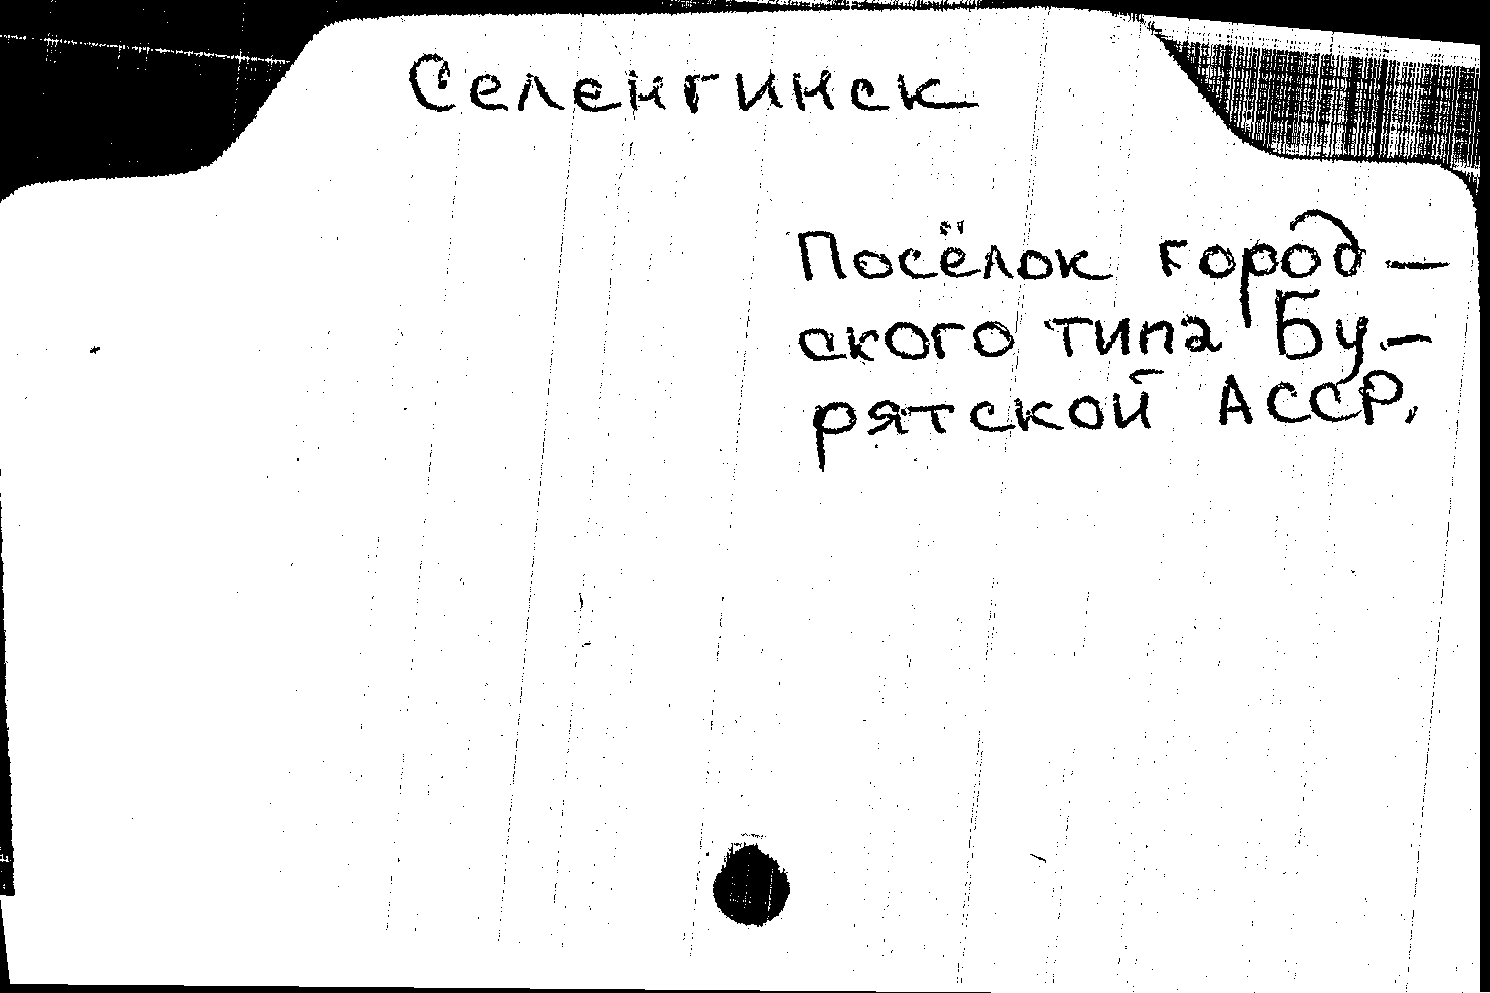 Селенгинск
Посёлок город-
ского типа Бу-
рятской АССР,